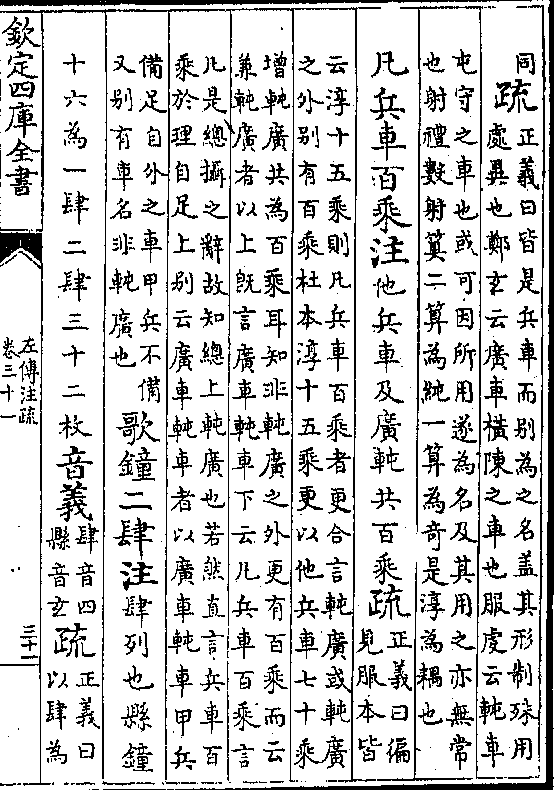 同疏正義曰皆是兵車而别為之名盖其形制殊用
處異也鄭玄云廣車橫陳之車也服虔云軘車
屯守之車也或可因所用遂為名及其用之亦無常
也射禮數射筭二筭為純一算為奇是淳為耦也
凡兵車百乘注他兵車及廣軘共百乘疏正義曰徧
見服本皆
云淳十五乘則凡兵車百乘者更合言軘廣或軘廣
之外别有百乘杜本淳十五乘更以他兵車七十乘
增軘廣共為百乘耳知非軘廣之外更有百乘而云
兼軘廣者以上旣言廣車軘車下云凡兵車百乘言
凡是總攝之辭故知總上軘廣也若然直言兵車百
乘於理自足上别云廣車軘車者以廣車軘車甲兵
備足自外之車甲兵不備
又别有車名非軘廣也歌鐘二肆注肆列也縣鐘
十六為一肆二肆三十二枚音義肆音四
縣音玄疏正義曰
以肆為
欽定四庫全書
左傳注疏
卷三十一
三十一